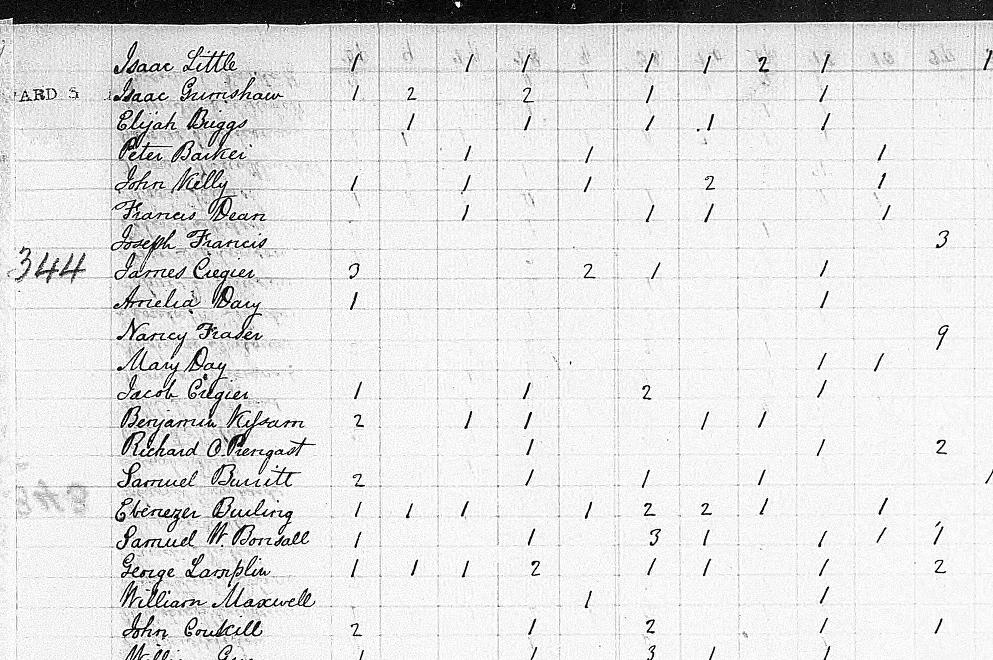 Isaac Little 1 1 1 1 1 2 1 1
ARD 5 Isaac Gumshaw 1 2 2 1 1
Elijah Briggs 1 1 1 1 1
Peter Barker 1 1 1
John Killy 1 1 1 2 1
Francis Dean 1 1 1 1
Joseph Francis 3
344 James Cregier 3 2 1 1
Amelia Dary 1 1
Nancy Fraser 9
Mary Day 1 1
Jacob Cregier 1 1 2 1
Benjamin Kissam 2 1 1 1 1
Richard O. 1 1 2
Samuel Burritt 2 1 1 1
Ebenezer Burling 1 1 1 1 2 2 1 1
Samuel W. Bonsall 1 1 3 1 1 1 1
George Lamplin 1 1 1 2 1 1 1 2
William Maxwell 1 1
John 2 1 2 1 1
1 1 3 1 1